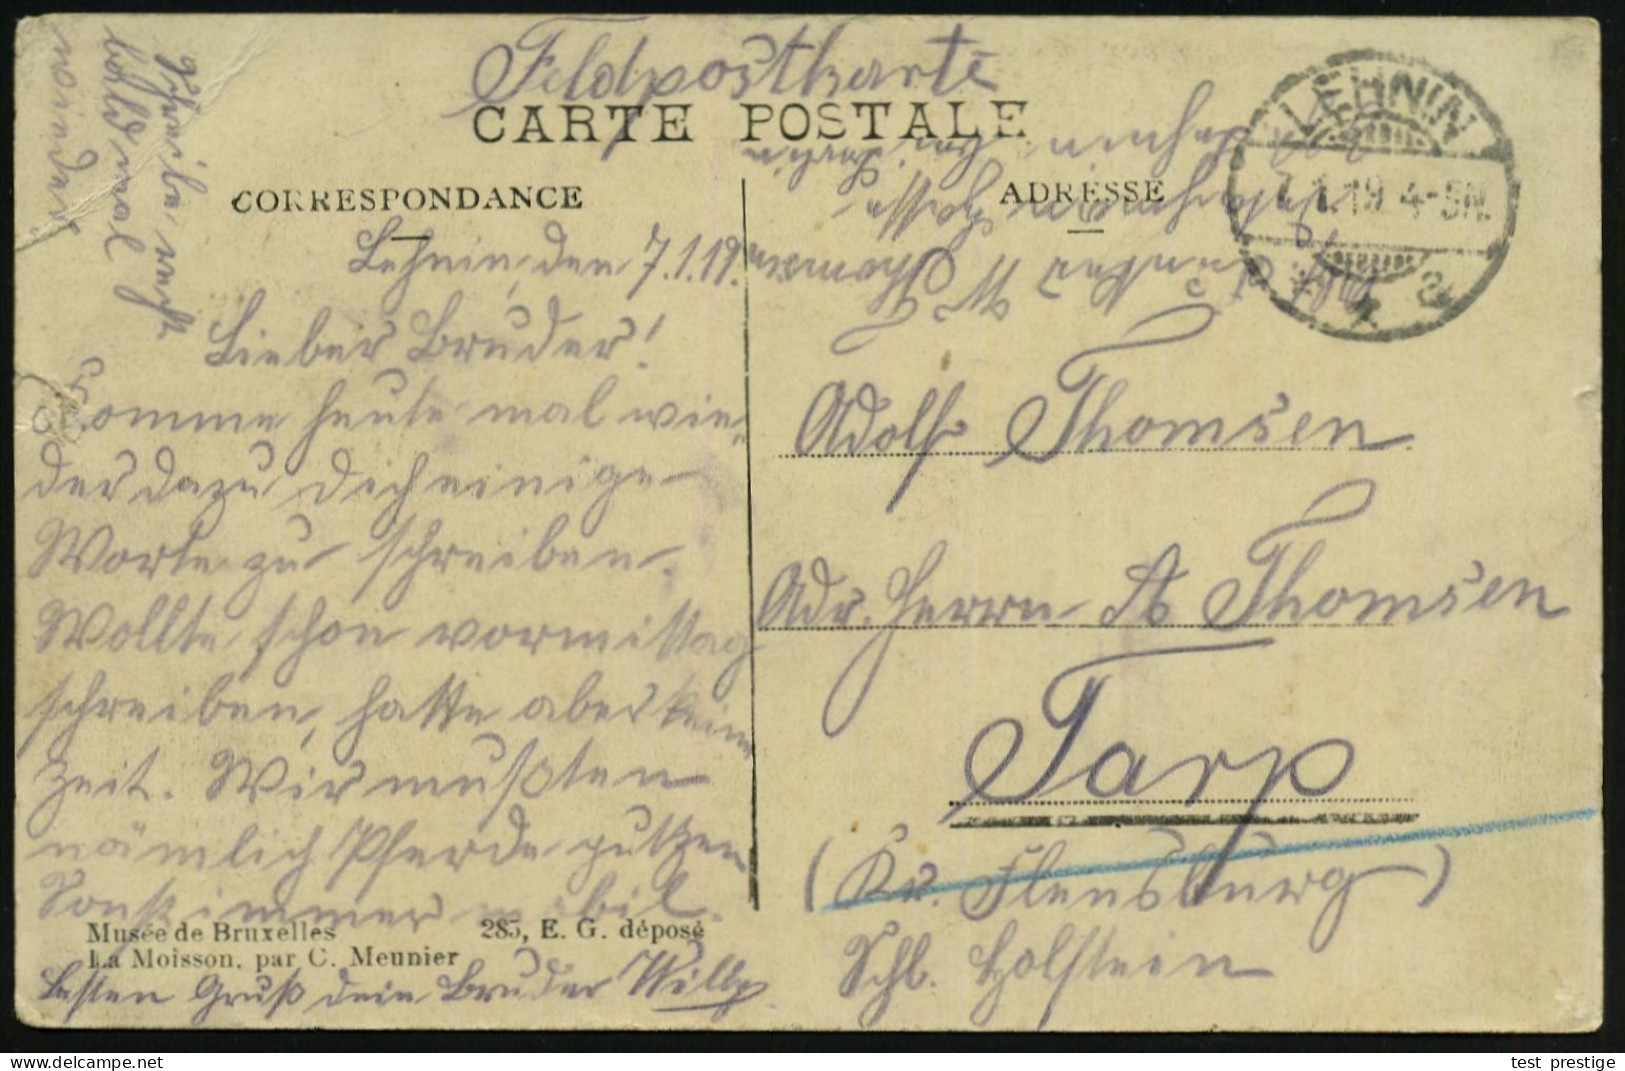 Feldpostkarte
CARTE POSTALE
CORRESPONDANCE
ADRESSE
LEHNIN
7.1.19. 4-5N.
* * a
Lehnin, den 7.1.19.
Lieber Bruder!
Komme heute mal wie-
der dazu Dich einige
Worte zu schreiben.
Wollte schon vormittag
schreiben, hatte aber keine
Zeit. Wir mußten
nämlich Pferde putzen
Sonst immer mobil.
Besten Gruß dein Bruder Willy
Schreibe recht
bald mal
wieder
Musée de Bruxelles
285, E. G. déposé
La Moisson, par C. Meunier
W Thomsen
Adolf Thomsen
Adr. Herrn A Thomsen
Tarp
(Kr. Flensburg)
Schl. Holstein
test_prestige